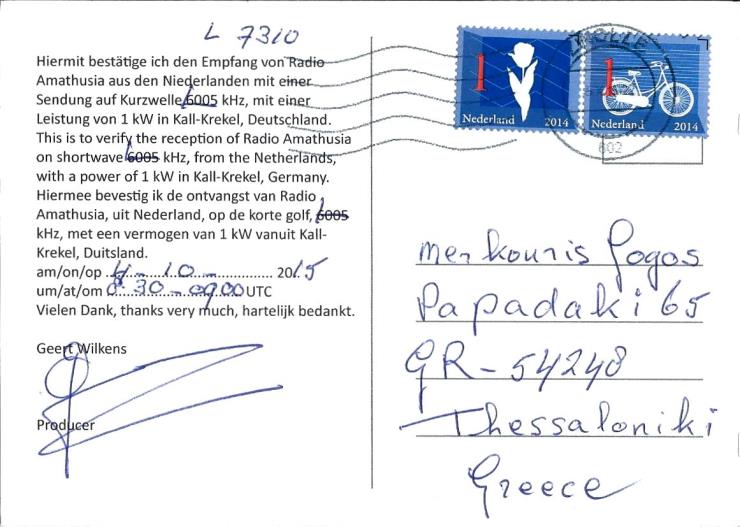 L 7310
Hiermit bestätige ich den Empfang von Radio
Amathusia aus den Niederlanden mit einer
Sendung auf Kurzwelle 6005 kHz, mit einer
Leistung von 1 kW in Kall-Krekel, Deutschland.
This is to verify the reception of Radio Amathusia
on shortwave 6005 kHz, from the Netherlands,
with a power of 1 kW in Kall-Krekel, Germany.
Hiermee bevestig ik de ontvangst van Radio
Amathusia, uit Nederland, op de korte golf, 6005
kHz, met een vermogen van 1 kW vanuit Kall-
Krekel, Duitsland.
am/on/op 4-10- 2015
um/at/om 8.30-0900 UTC
Vielen Dank, thanks very much, hartelijk bedankt.
Geert Wilkens
Producer
1
Nederland 2014
1
Nederland 2014
ZWOLLE
602
Merkouris Gogos
Papadaki 65
GR-54248
Thessaloniki
Greece